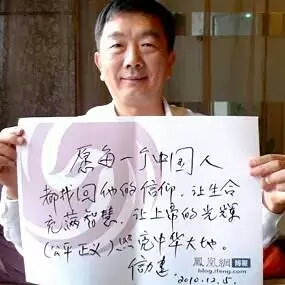 愿每一个中国人
都找回他的信仰，让生命
充满智慧，让上帝的光辉
(公平正义)照亮中华大地。
凤凰網 博報
blog.ifeng.com
2010.12.5.